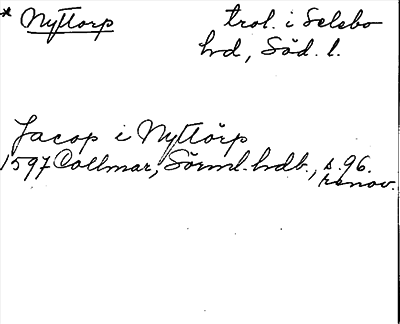 * Nyttorp
trol. i Selebo
hd, Söd. l.
Jacop i Nyttörp
1597 Collmar, Sörml. hdb., s. 96.
renov.